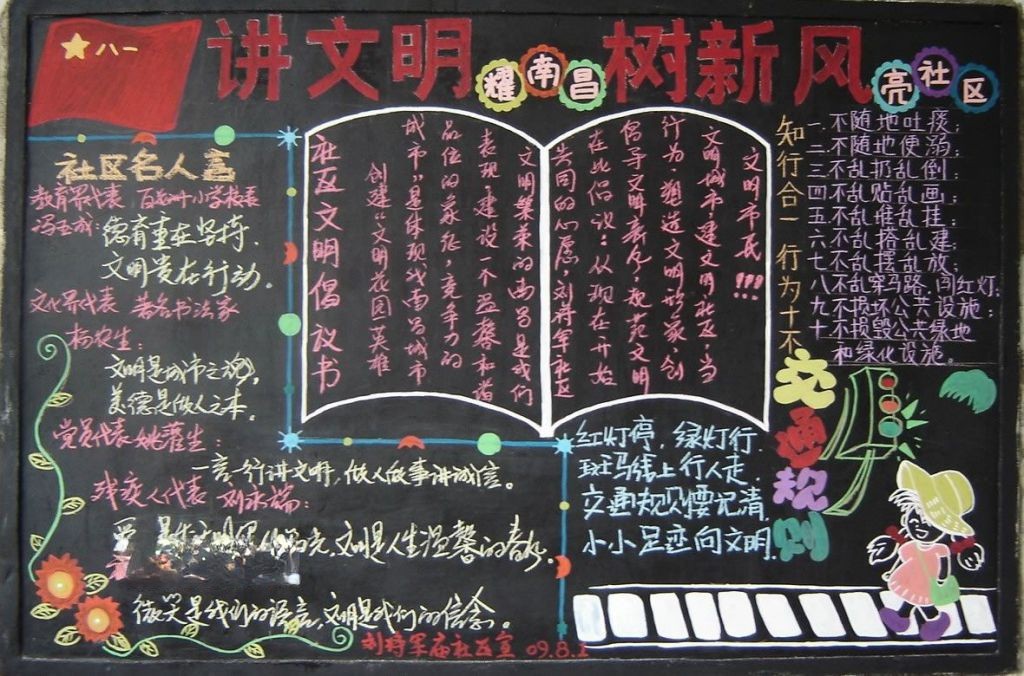 八一
讲文明 耀南昌 树新风 亮社区
社区名人言
教育界代表 百花洲小学校长
冯玉成:德育重在坚持.
文明贵在行动.
文化界代表 著名书法家
杨农生:
文明是城市之魂,
美德是做人之本。
党员代表 姚灌生:
一言一行讲文明,做人做事讲诚信。
残疾人代表 刘永端:
文明是人生温馨的春
微笑是我们的语言,文明是我们的信念。
社区文明倡议书
文明市民!!!
文明城市,建文明社区,当
行为,塑造文明形象,创
倡导文明新风,规范文明
在此倡议:从现在开始
共同的心愿,刘将军社区
文明繁荣的南昌是我们
表现,建设一个温馨和谐
品位的象征,竞争力的
城市"是体现我南昌城市
创建"文明花园英雄
知行合一 行为十不
一不随地吐痰;
二不随地便溺;
三不乱扔乱倒;
四不乱贴乱画;
五不乱堆乱挂;
六不乱搭乱建;
七不乱摆乱放;
八不乱穿马路,闯红灯;
九不损坏公共设施;
十不损毁公共绿地
和绿化设施。
交通规则
红灯停,绿灯行,
斑马线上行人走,
交通规则要记清,
小小足迹向文明.
刘将军庙社区宣 09.8.1